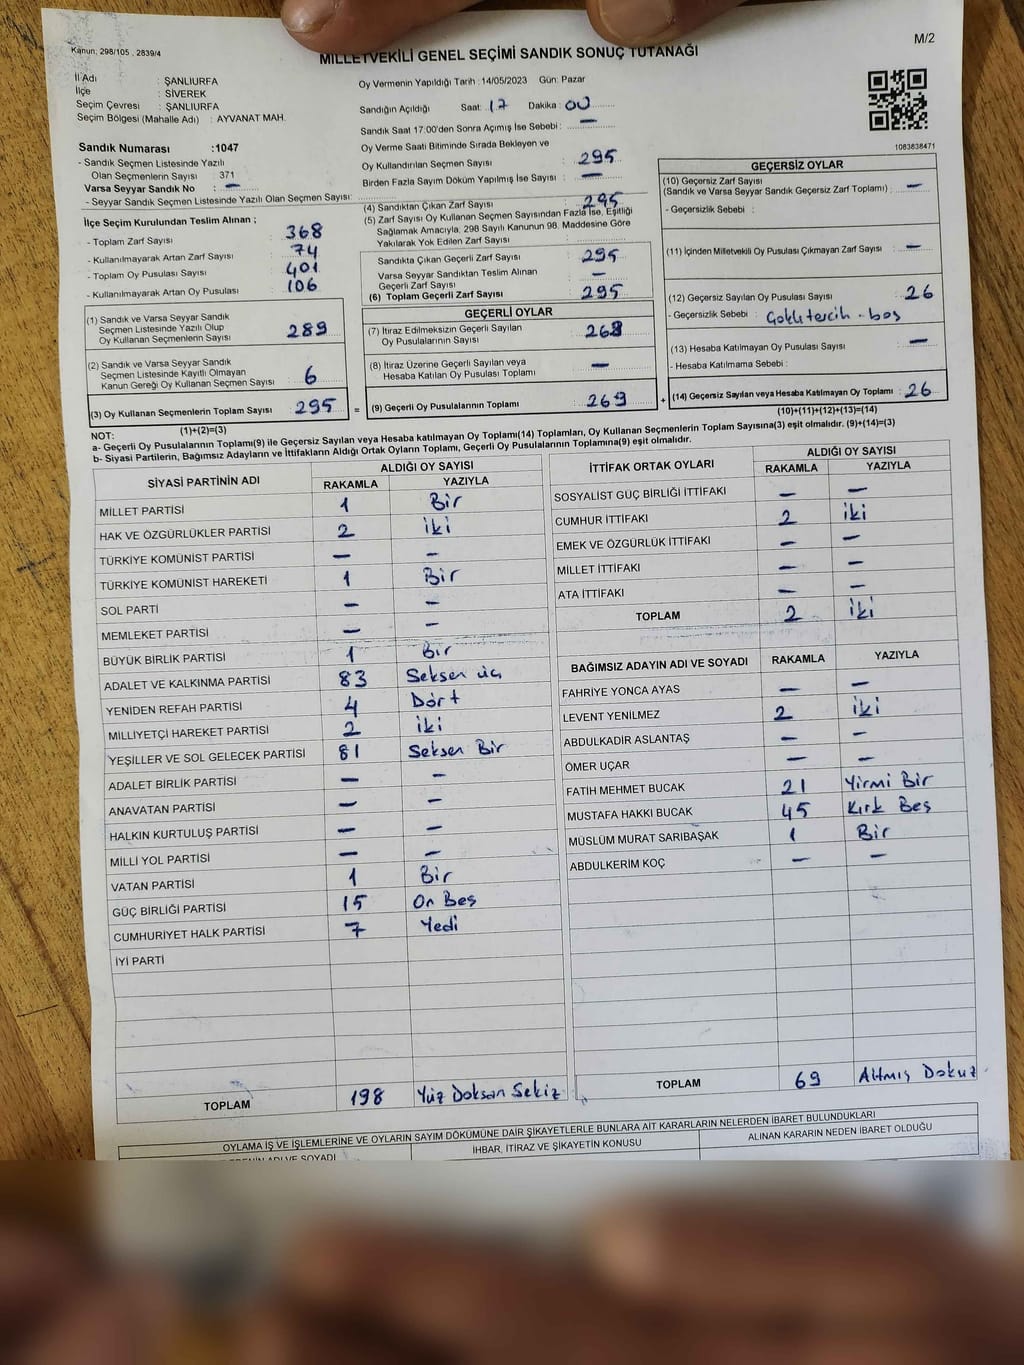 Kanun; 298/105 . 2839/4
M/2
MİLLETVEKİLİ GENEL SEÇİMİ SANDIK SONUÇ TUTANAĞI
İl Adı : ŞANLIURFA
İlçe : SİVEREK
Seçim Çevresi : ŞANLIURFA
Seçim Bölgesi (Mahalle Adı) : AYVANAT MAH.
Sandık Numarası :1047
- Sandık Seçmen Listesinde Yazılı
Olan Seçmenlerin Sayısı : 371
Varsa Seyyar Sandık No : —
- Seyyar Sandık Seçmen Listesinde Yazılı Olan Seçmen Sayısı:
İlçe Seçim Kurulundan Teslim Alınan ;
- Toplam Zarf Sayısı : 368
- Kullanılmayarak Artan Zarf Sayısı : 74
- Toplam Oy Pusulası Sayısı : 401
- Kullanılmayarak Artan Oy Pusulası : 106
(1) Sandık ve Varsa Seyyar Sandık
Seçmen Listesinde Yazılı Olup
Oy Kullanan Seçmenlerin Sayısı : 289
(2) Sandık ve Varsa Seyyar Sandık
Seçmen Listesinde Kayıtlı Olmayan
Kanun Gereği Oy Kullanan Seçmen Sayısı : 6
(3) Oy Kullanan Seçmenlerin Toplam Sayısı : 295 =
(1)+(2)=(3)
Oy Vermenin Yapıldığı Tarih : 14/05/2023 Gün: Pazar
Sandığın Açıldığı Saat: 17 Dakika : 00
Sandık Saat 17:00'den Sonra Açımış İse Sebebi : —
Oy Verme Saati Bitiminde Sırada Bekleyen ve
Oy Kullandırılan Seçmen Sayısı : 295
Birden Fazla Sayım Döküm Yapılmış İse Sayısı : —
(4) Sandıktan Çıkan Zarf Sayısı : 295
(5) Zarf Sayısı Oy Kullanan Seçmen Sayısından Fazla İse, Eşitliği
Sağlamak Amacıyla, 298 Sayılı Kanunun 98. Maddesine Göre
Yakılarak Yok Edilen Zarf Sayısı :
Sandıkta Çıkan Geçerli Zarf Sayısı : 295
Varsa Seyyar Sandıktan Teslim Alınan
Geçerli Zarf Sayısı : —
(6) Toplam Geçerli Zarf Sayısı : 295
GEÇERLİ OYLAR
(7) İtiraz Edilmeksizin Geçerli Sayılan
Oy Pusulalarının Sayısı :
(8) İtiraz Üzerine Geçerli Sayılan veya
Hesaba Katılan Oy Pusulası Toplamı : —
(9) Geçerli Oy Pusulalarının Toplamı : 269 +
1083838471
GEÇERSİZ OYLAR
(10) Geçersiz Zarf Sayısı : —
(Sandık ve Varsa Seyyar Sandık Geçersiz Zarf Toplamı)
- Geçersizlik Sebebi :
(11) İçinden Milletvekili Oy Pusulası Çıkmayan Zarf Sayısı : —
(12) Geçersiz Sayılan Oy Pusulası Sayısı : 26
- Geçersizlik Sebebi : Çoklu tercih - boş
(13) Hesaba Katılmayan Oy Pusulası Sayısı : —
- Hesaba Katılmama Sebebi :
(14) Geçersiz Sayılan veya Hesaba Katılmayan Oy Toplamı : 26
(10)+(11)+(12)+(13)=(14)
NOT:
a- Geçerli Oy Pusulalarının Toplamı(9) ile Geçersiz Sayılan veya Hesaba katılmayan Oy Toplamı(14) Toplamları, Oy Kullanan Seçmenlerin Toplam Sayısına(3) eşit olmalıdır. (9)+(14)=(3)
b- Siyasi Partilerin, Bağımsız Adayların ve İttifakların Aldığı Ortak Oyların Toplamı, Geçerli Oy Pusulalarının Toplamına(9) eşit olmalıdır.
SİYASİ PARTİNİN ADI ALDIĞI OY SAYISI
RAKAMLA YAZIYLA
MİLLET PARTİSİ 1 Bir
HAK VE ÖZGÜRLÜKLER PARTİSİ 2 iki
TÜRKİYE KOMÜNİST PARTİSİ — —
TÜRKİYE KOMÜNİST HAREKETİ 1 Bir
SOL PARTİ — —
MEMLEKET PARTİSİ — —
BÜYÜK BİRLİK PARTİSİ 1 Bir
ADALET VE KALKINMA PARTİSİ 83 Seksen üç
YENİDEN REFAH PARTİSİ 4 Dört
MİLLİYETÇİ HAREKET PARTİSİ 2 iki
YEŞİLLER VE SOL GELECEK PARTİSİ 81 Seksen Bir
ADALET BİRLİK PARTİSİ — —
ANAVATAN PARTİSİ — —
HALKIN KURTULUŞ PARTİSİ — —
MİLLİ YOL PARTİSİ — —
VATAN PARTİSİ 1 Bir
GÜÇ BİRLİĞİ PARTİSİ 15 On Beş
CUMHURİYET HALK PARTİSİ 7 Yedi
İYİ PARTİ
TOPLAM 198 Yüz Doksan Sekiz
İTTİFAK ORTAK OYLARI ALDIĞI OY SAYISI
RAKAMLA YAZIYLA
SOSYALİST GÜÇ BİRLİĞİ İTTİFAKI — —
CUMHUR İTTİFAKI 2 iki
EMEK VE ÖZGÜRLÜK İTTİFAKI — —
MİLLET İTTİFAKI — —
ATA İTTİFAKI — —
TOPLAM 2 iki
BAĞIMSIZ ADAYIN ADI VE SOYADI RAKAMLA YAZIYLA
FAHRİYE YONCA AYAS — —
LEVENT YENİLMEZ 2 iki
ABDULKADİR ASLANTAŞ — —
ÖMER UÇAR — —
FATİH MEHMET BUCAK 21 Yirmi Bir
MUSTAFA HAKKI BUCAK 45 Kırk Beş
MÜSLÜM MURAT SARIBAŞAK 1 Bir
ABDULKERİM KOÇ — —
TOPLAM 69 Altmış Dokuz
OYLAMA İŞ VE İŞLEMLERİNE VE OYLARIN SAYIM DÖKÜMÜNE DAİR ŞİKAYETLERLE BUNLARA AİT KARARLARIN NELERDEN İBARET BULUNDUKLARI
ADI VE SOYADI İHBAR, İTİRAZ VE ŞİKAYETİN KONUSU ALINAN KARARIN NEDEN İBARET OLDUĞU